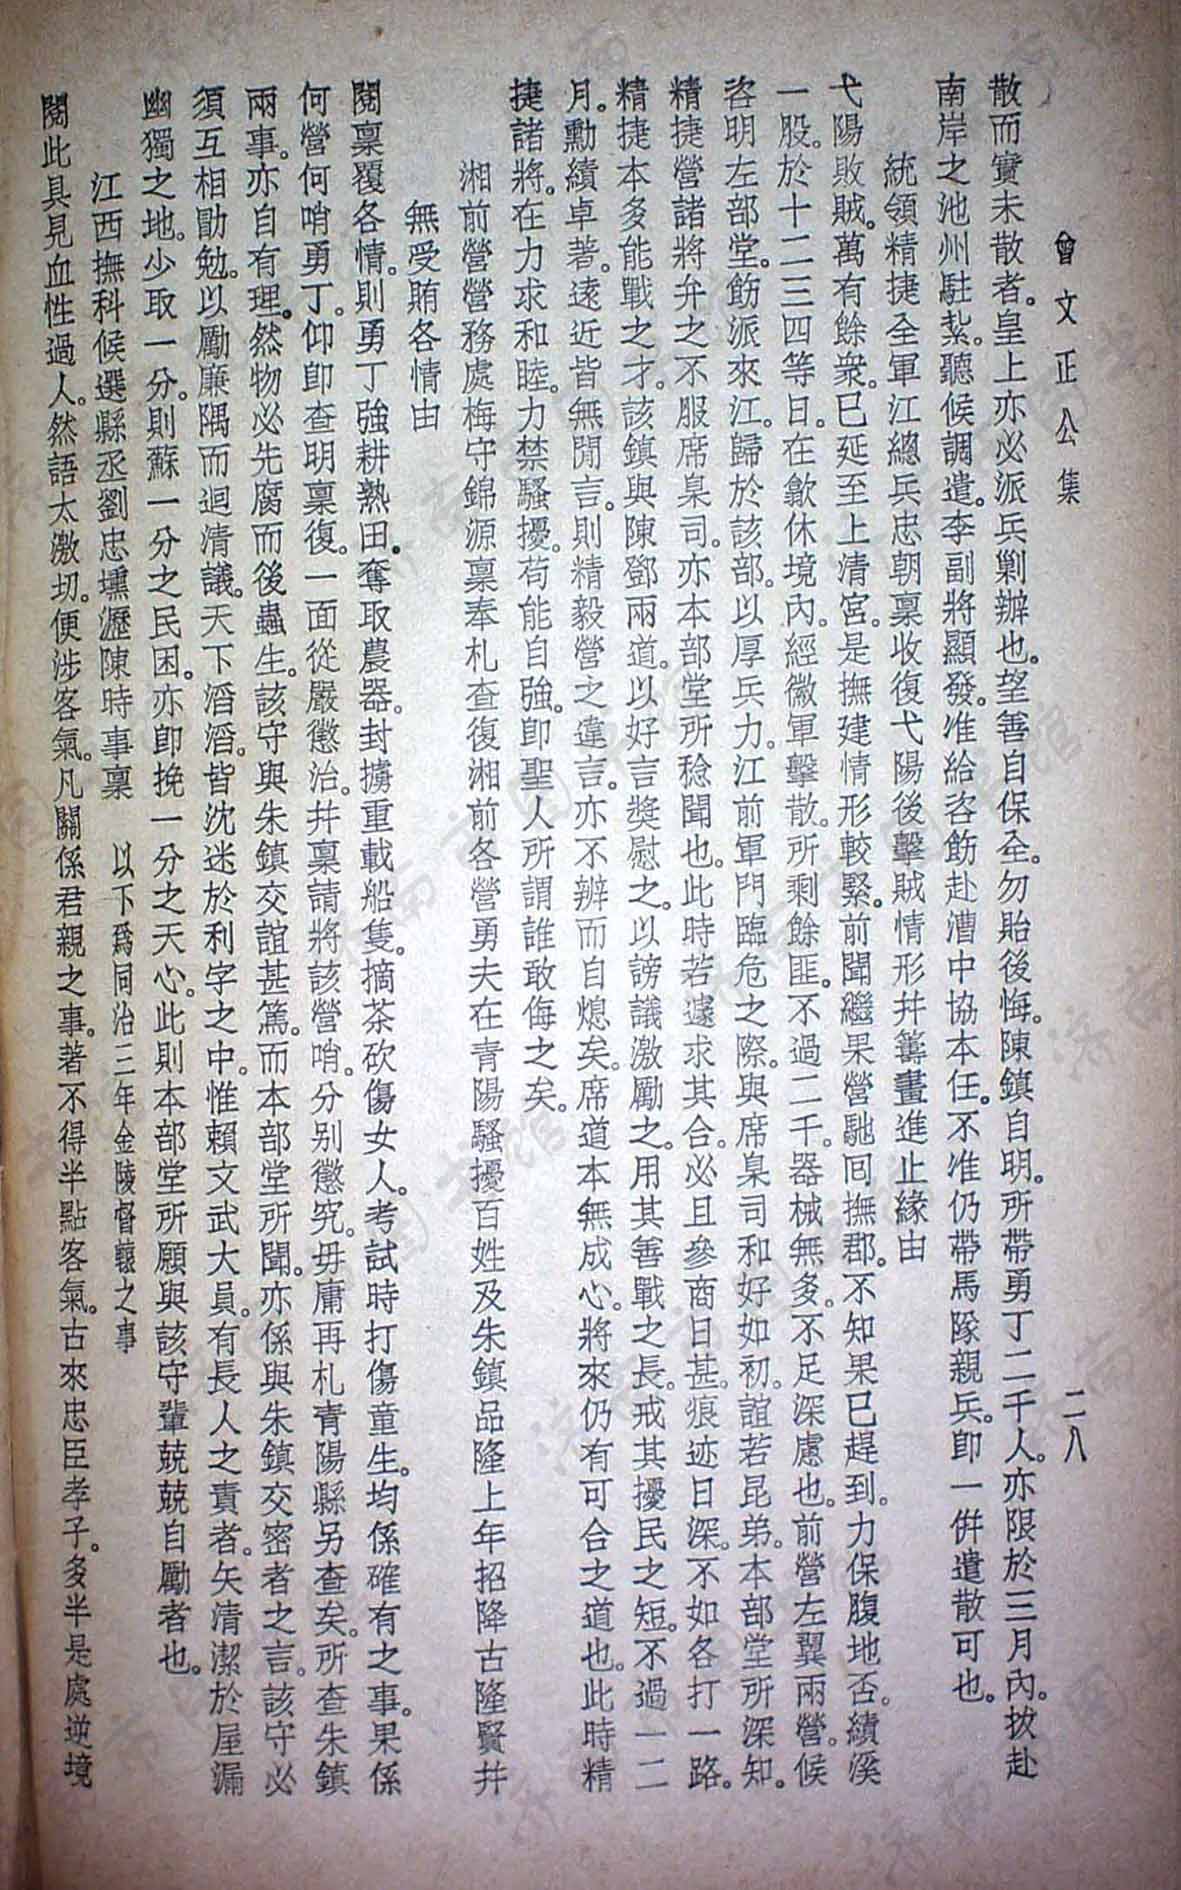 曾文正公集
二八
散而實未散者。皇上亦必派兵剿辦也。望善自保全。勿貽後悔。陳鎮自明。所帶勇丁二千人。亦限於三月內。拔赴
南岸之池州駐紮。聽候調遣。李副將顯發。准給咨飭赴漕中協本任。不准仍帶馬隊親兵。卽一併遣散可也。
統領精捷全軍江總兵忠朝稟收復弋陽後擊賊情形幷籌畫進止緣由
弋陽敗賊。萬有餘衆。已延至上清宮。是撫建情形較緊。前聞繼果營馳回撫郡。不知果已趕到。力保腹地否。績溪
一股。於十二三四等日。在歙休境內。經徽軍擊散。所剩餘匪。不過二千。器械無多。不足深慮也。前營左翼兩營。候
咨明左部堂。飭派來江。歸於該部。以厚兵力。江前軍門臨危之際。與席臬司和好如初。誼若昆弟。本部堂所深知。
精捷營諸將弁之不服席臬司。亦本部堂所稔聞也。此時若遽求其合。必且參商日甚。痕迹日深。不如各打一路。
精捷本多能戰之才。該鎮與陳鄧兩道。以好言獎慰之。以謗議激勵之。用其善戰之長。戒其擾民之短。不過一二
月。勳績卓著。遠近皆無閒言。則精毅營之違言。亦不辨而自熄矣。席道本無成心。將來仍有可合之道也。此時精
捷諸將。在力求和睦。力禁騷擾。苟能自強。卽聖人所謂誰敢侮之矣。
湘前營營務處梅守錦源稟奉札查復湘前各營勇夫在青陽騷擾百姓及朱鎮品隆上年招降古隆賢幷
無受賄各情由
閱稟覆各情。則勇丁強耕熟田。奪取農器。封擄重載船隻。摘茶砍傷女人。考試時打傷童生。均係確有之事。果係
何營何哨勇丁。仰卽查明稟復。一面從嚴懲治。幷稟請將該營哨。分别懲究。毋庸再札青陽縣另查矣。所查朱鎮
兩事。亦自有理。然物必先腐而後蟲生。該守與朱鎮交誼甚篤。而本部堂所聞。亦係與朱鎮交密者之言。該守必
須互相勖勉。以勵廉隅而迴清議。天下滔滔。皆沈迷於利字之中。惟賴文武大員。有長人之責者。矢清潔於屋漏
幽獨之地。少取一分。則蘇一分之民困。亦卽挽一分之天心。此則本部堂所願與該守輩兢兢自勵者也。
江西撫科候選縣丞劉忠壎瀝陳時事稟　以下爲同治三年金陵督轅之事
閱此具見血性過人。然語太激切。便涉客氣。凡關係君親之事。著不得半點客氣。古來忠臣孝子。多半是處逆境